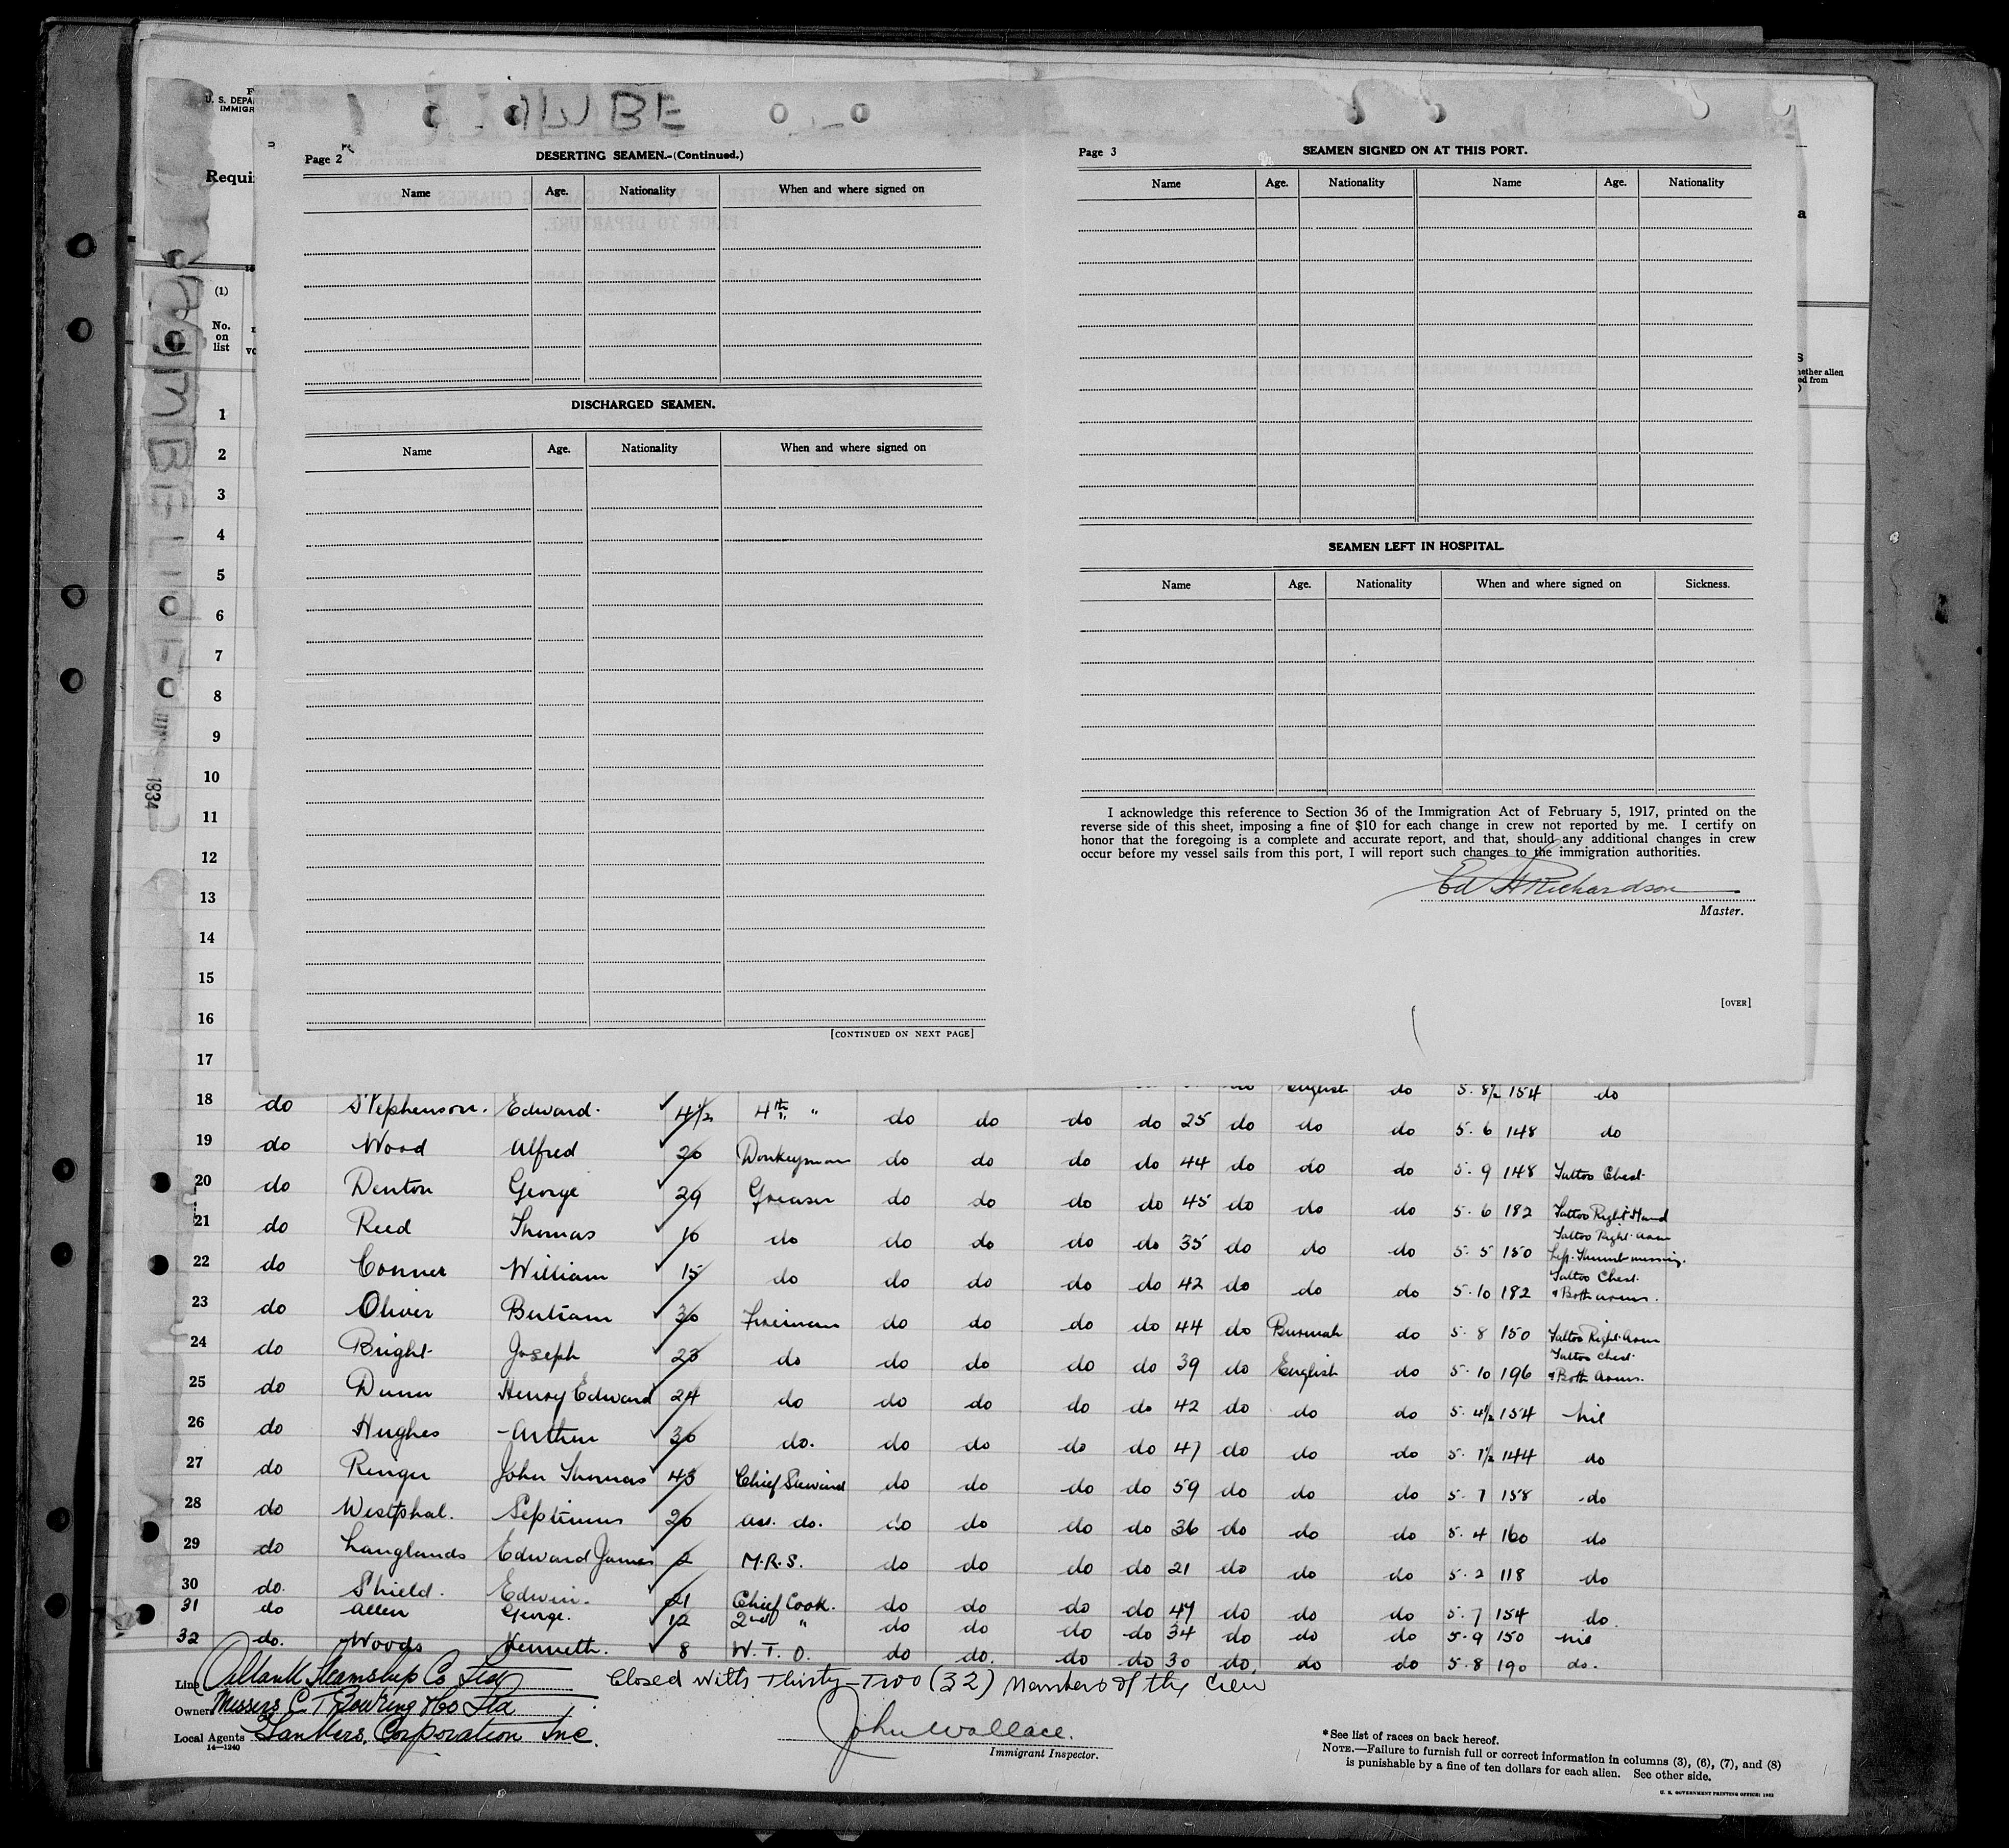 U. S. DEPA
IMMIGR
Requi
(1)
No.
on
list
1934
Page 2
DESERTING SEAMEN.-(Continued.)
Name Age. Nationality When and where signed on
DISCHARGED SEAMEN.
Name Age. Nationality When and where signed on
[CONTINUED ON NEXT PAGE]
Page 3
SEAMEN SIGNED ON AT THIS PORT.
Name Age. Nationality Name Age. Nationality
SEAMEN LEFT IN HOSPITAL.
Name Age. Nationality When and where signed on Sickness.
I acknowledge this reference to Section 36 of the Immigration Act of February 5, 1917, printed on the
reverse side of this sheet, imposing a fine of $10 for each change in crew not reported by me. I certify on
honor that the foregoing is a complete and accurate report, and that, should any additional changes in crew
occur before my vessel sails from this port, I will report such changes to the immigration authorities.
Ed H Richardson
Master.
[OVER]
1
2
3
4
5
6
7
8
9
10
11
12
13
14
15
16
17 do English do 5. 8½ 154 do
18 do Stephenson. Edward. 4½ 4th " do do do do 25 do do do 5. 6 148 do
19 do Wood Alfred 20 Donkeyman do do do do 44 do do do 5. 9 148 Tattoo Chest
20 do Denton George 29 Greaser do do do do 45 do do do 5. 6 182 Tattoo Right Hand
21 do Reed Thomas 10 do do do do do 35 do do do 5. 5 150 Tattoo Right arm Left Thumb missing.
22 do Conner William 15 do do do do do 42 do do do 5. 10 182 Tattoo Chest. & Both arms.
23 do Oliver Bertram 30 Fireman do do do do 44 do Burmah do 5. 8 150 Tattoo Right arm
24 do Bright Joseph 23 do do do do do 39 do English do 5. 10 196 Tattoo chest. & Both arms.
25 do Dunn Henry Edward 24 do do do do do 42 do do do 5. 4½ 154 nil
26 do Hughes Arthur 30 do. do do do do 47 do do do 5. 7½ 144 do
27 do Ringer John Thomas 43 Chief Steward do do do do 59 do do do 5. 7 158 do
28 do Westphal. Septimus 20 Ass. do. do do do do 36 do do do 5. 4 160 do
29 do Langlands Edward James 2 M.R.S. do do do do 21 do do do 5. 2 118 do
30 do. Shield. Edwin. 21 Chief Cook. do do do do 47 do do do 5. 7 154 do.
31 do Allen George. 12 2nd " do do do do 34 do do do 5. 9 150 nil
32 do. Woods Kenneth. 8 W. T. O. do do. do do 30 do. do do 5. 8 190 do.
Line Steamship Co Ltd
Closed with Thirty-Two (32) Members of the Crew
Owners Messrs C. T. Bowring & Co Ltd
Local Agents Tankers Corporation Inc.
14—1240
John Wallace.
Immigrant Inspector.
*See list of races on back hereof.
NOTE.—Failure to furnish full or correct information in columns (3), (6), (7), and (8)
is punishable by a fine of ten dollars for each alien. See other side.
U. S. GOVERNMENT PRINTING OFFICE: 1932